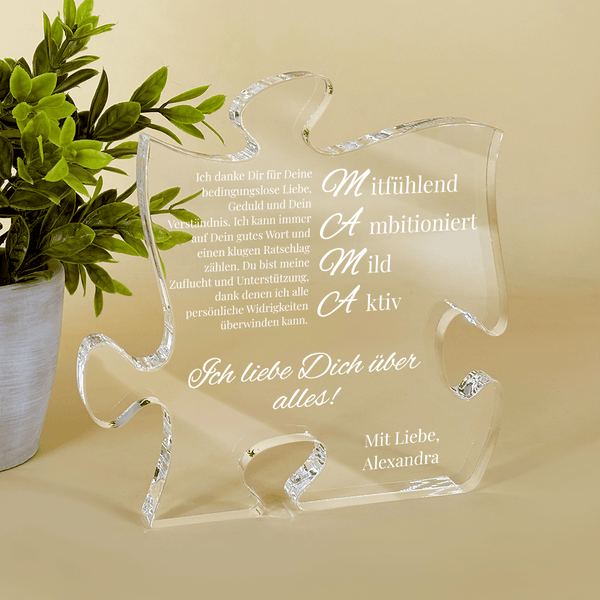 Ich danke Dir für Deine
bedingungslose Liebe,
Geduld und Dein
Verständnis. Ich kann immer
auf Dein gutes Wort und
einen klugen Ratschlag
zählen. Du bist meine
Zuflucht und Unterstützung,
dank denen ich alle
persönliche Widrigkeiten
überwinden kann.
Mitfühlend
Ambitioniert
Mild
Aktiv
Ich liebe Dich über
alles!
Mit Liebe,
Alexandra